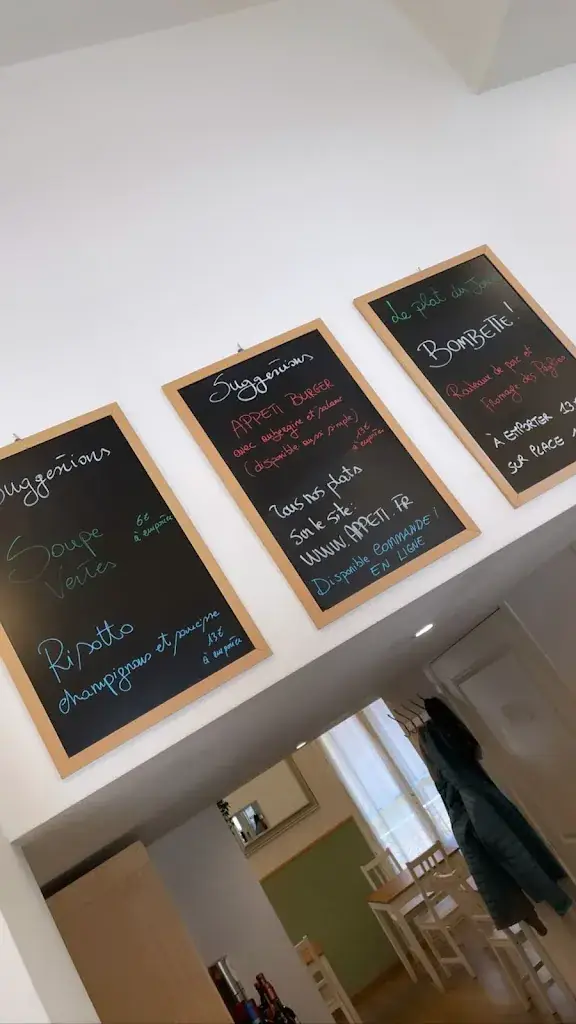 Suggestions
Soupe
Vertes
6€
à emporter
Risotto
champignons et saucisse
13€
à emporter
Suggestions
APPETI BURGER
avec aubergine et salami
(disponible aussi simple)
13€
à emporter
Tous nos plats
sur le site:
WWW.APPETI.FR
Disponible COMMANDE!
EN LIGNE
Le plat du Jour
BOMBETTE!
Rouleaux de porc et
Fromage des Pouilles
À EMPORTER 13€
SUR PLACE